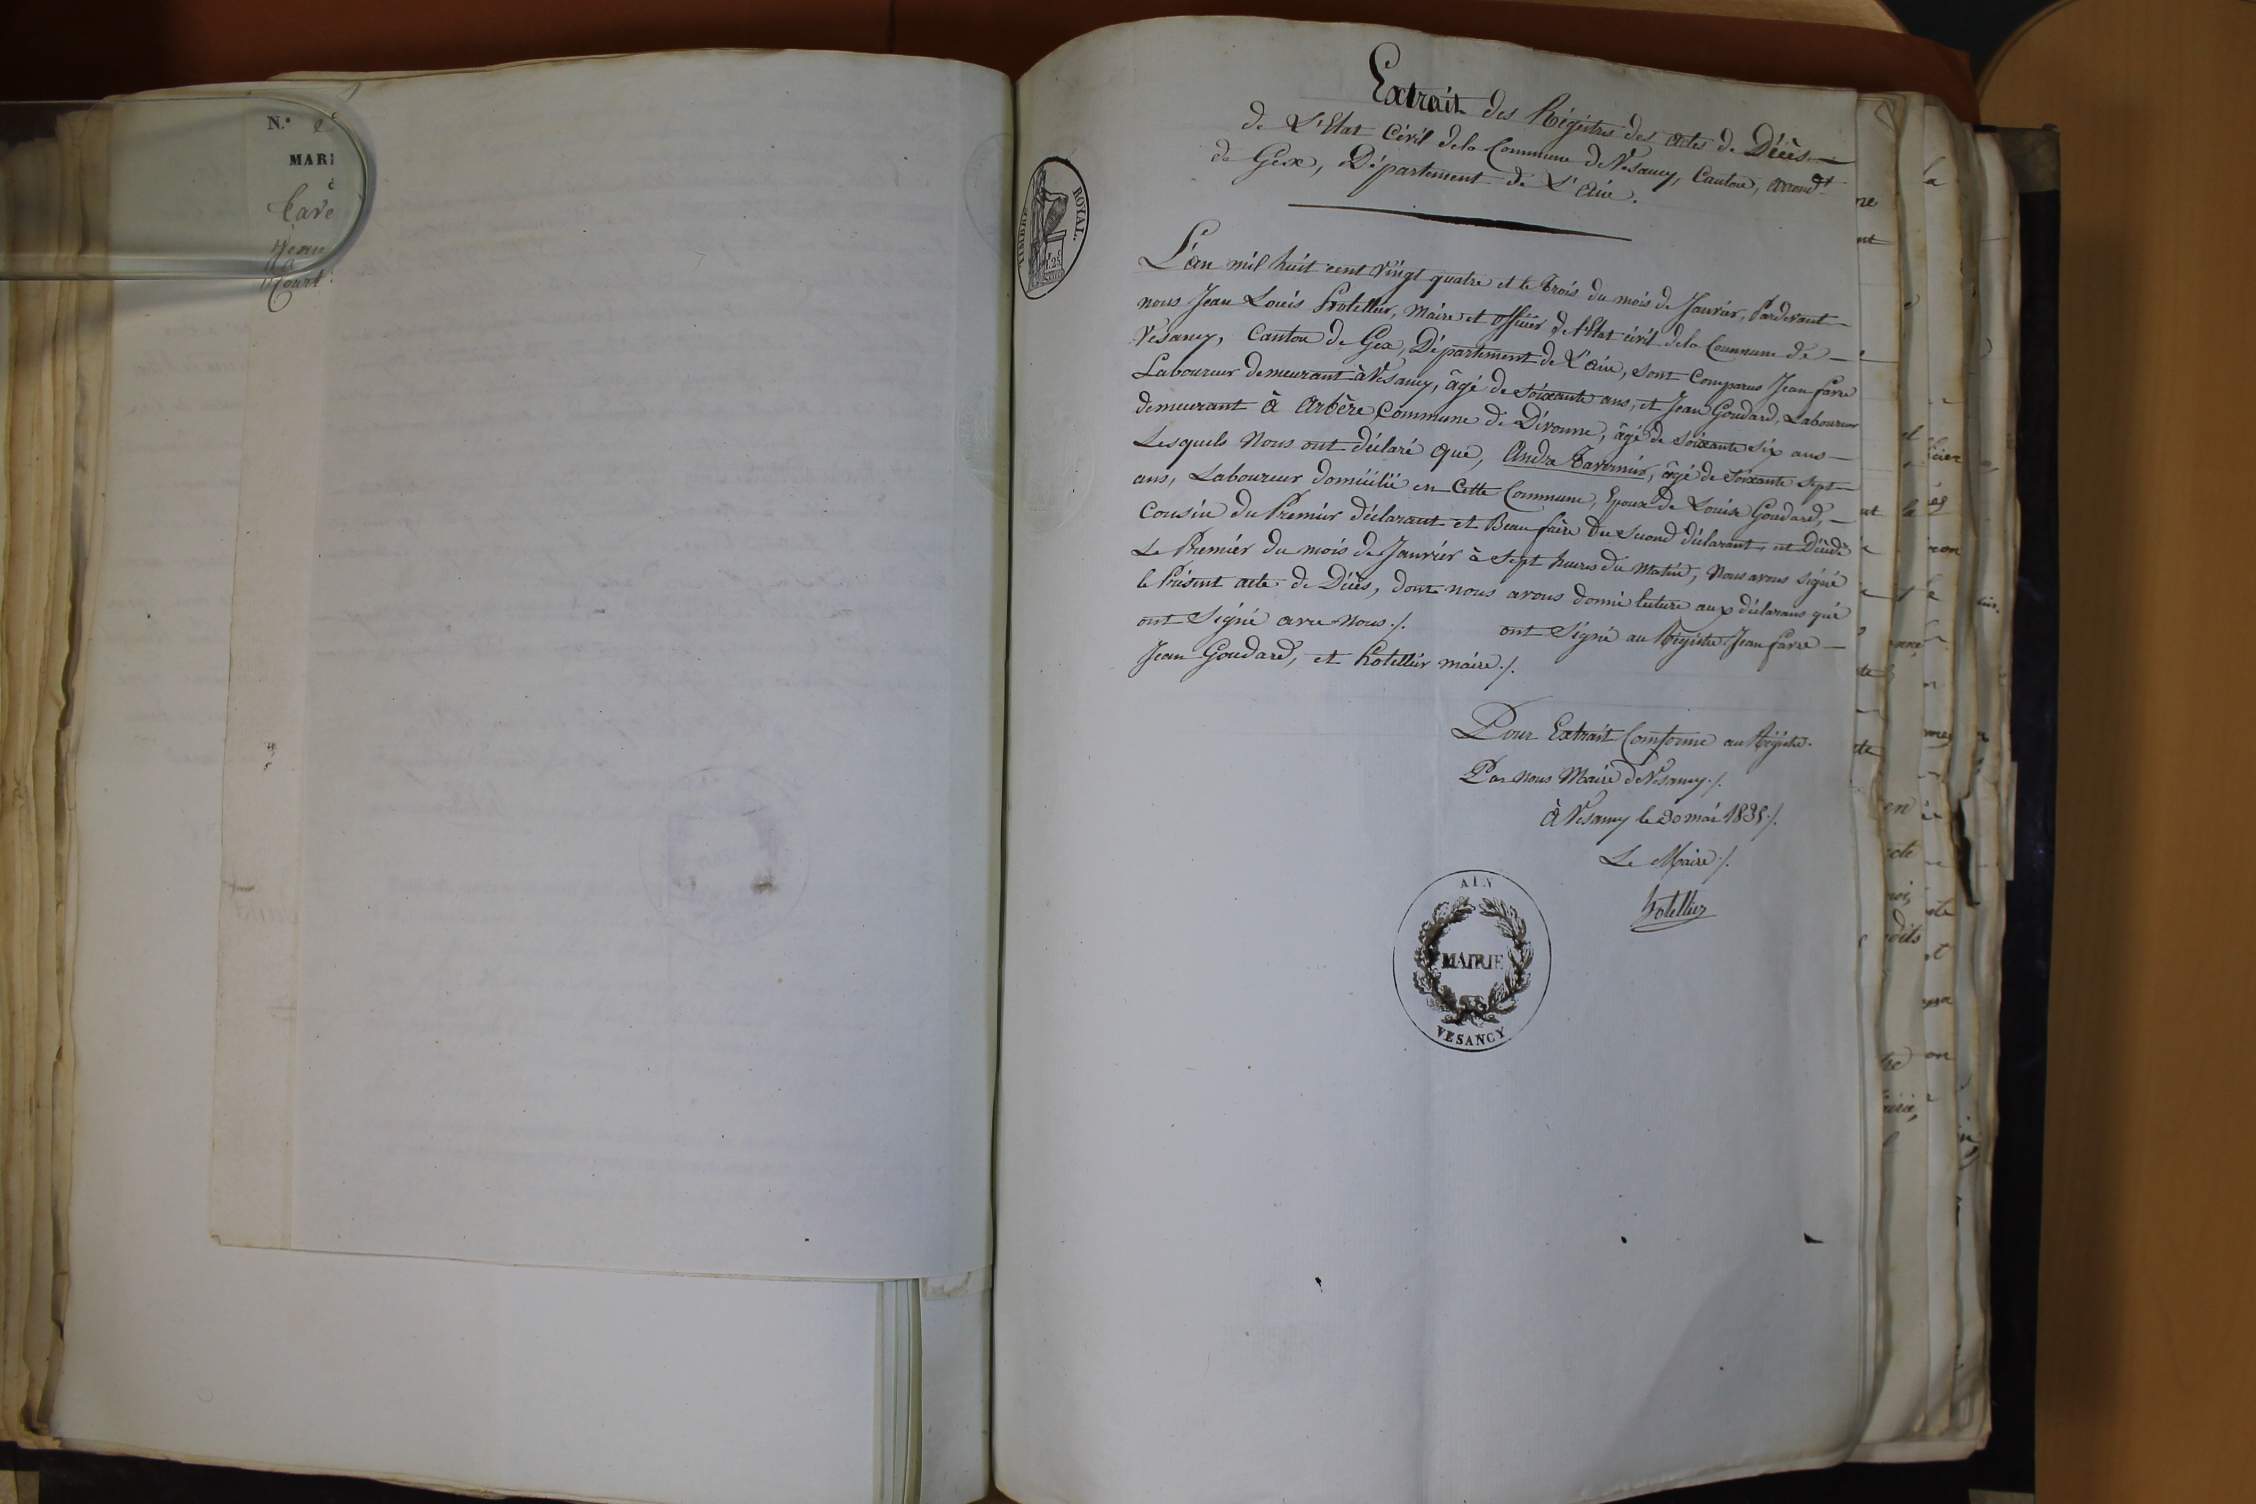 N.°
MARI
Cave
Jean
Court
TIMBRE ROYAL.
1.25
Extrait des Régistres des actes de Décès
de L'Etat Civil de la Commune de Vesancy, Canton, arrond.t
de Gex, Département de L'ain.
L'an mil huit cent vingt quatre et le trois du mois de Janvier, Pardevant
nous Jean Louis hotellier, Maire et officier de l'Etat civil de la Commune de
Vesancy, Canton de Gex, Département de L'ain, sont Comparus Jean favre
Laboureur demeurant à Vesancy, âgé de soixante ans, et Jean Goudard, Laboureur
demeurant à Arbère Commune de Divonne, âgé de soixante six ans
Lesquels Nous ont déclaré que, André Tavernier, âgé de soixante sept
ans, Laboureur domicilié en Cette Commune, Epoux de Louise Goudard,
Cousin du Premier déclarant et Beau frère du second déclarant, est Décédé
Le Premier du mois de Janvier à sept heures du Matin, Nous avons signé
le Présent acte de Décès, dont nous avons donné lecture aux déclarans qui
ont Signé avec Nous ./. ont Signé au Régistre Jean favre
Jean Goudard, et hotellier maire ./.
Pour Extrait Conforme au Régistre.
Par nous Maire de Vesancy ./.
à Vesancy le 30 mai 1835 ./.
Le Maire ./.
hotellier
AIN
MAIRIE
VESANCY